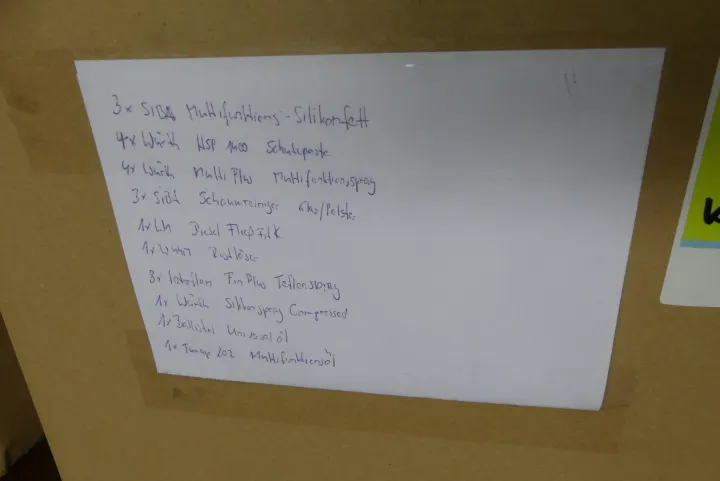 3x SIBA Multifunktions-Silikonfett
4x Würth HSP 1400 Schutzpaste
4x Würth Multi Plus Multifunktionsspray
3x SIBA Schaumreiniger /Polster
1x LM Diesel Fließ Fit K
1x Rostlöser
3x Fin Plus Teflonspray
1x Würth Silikonspray Compressed
1x Ballistol Universalöl
1x 202 Multifunktionsöl